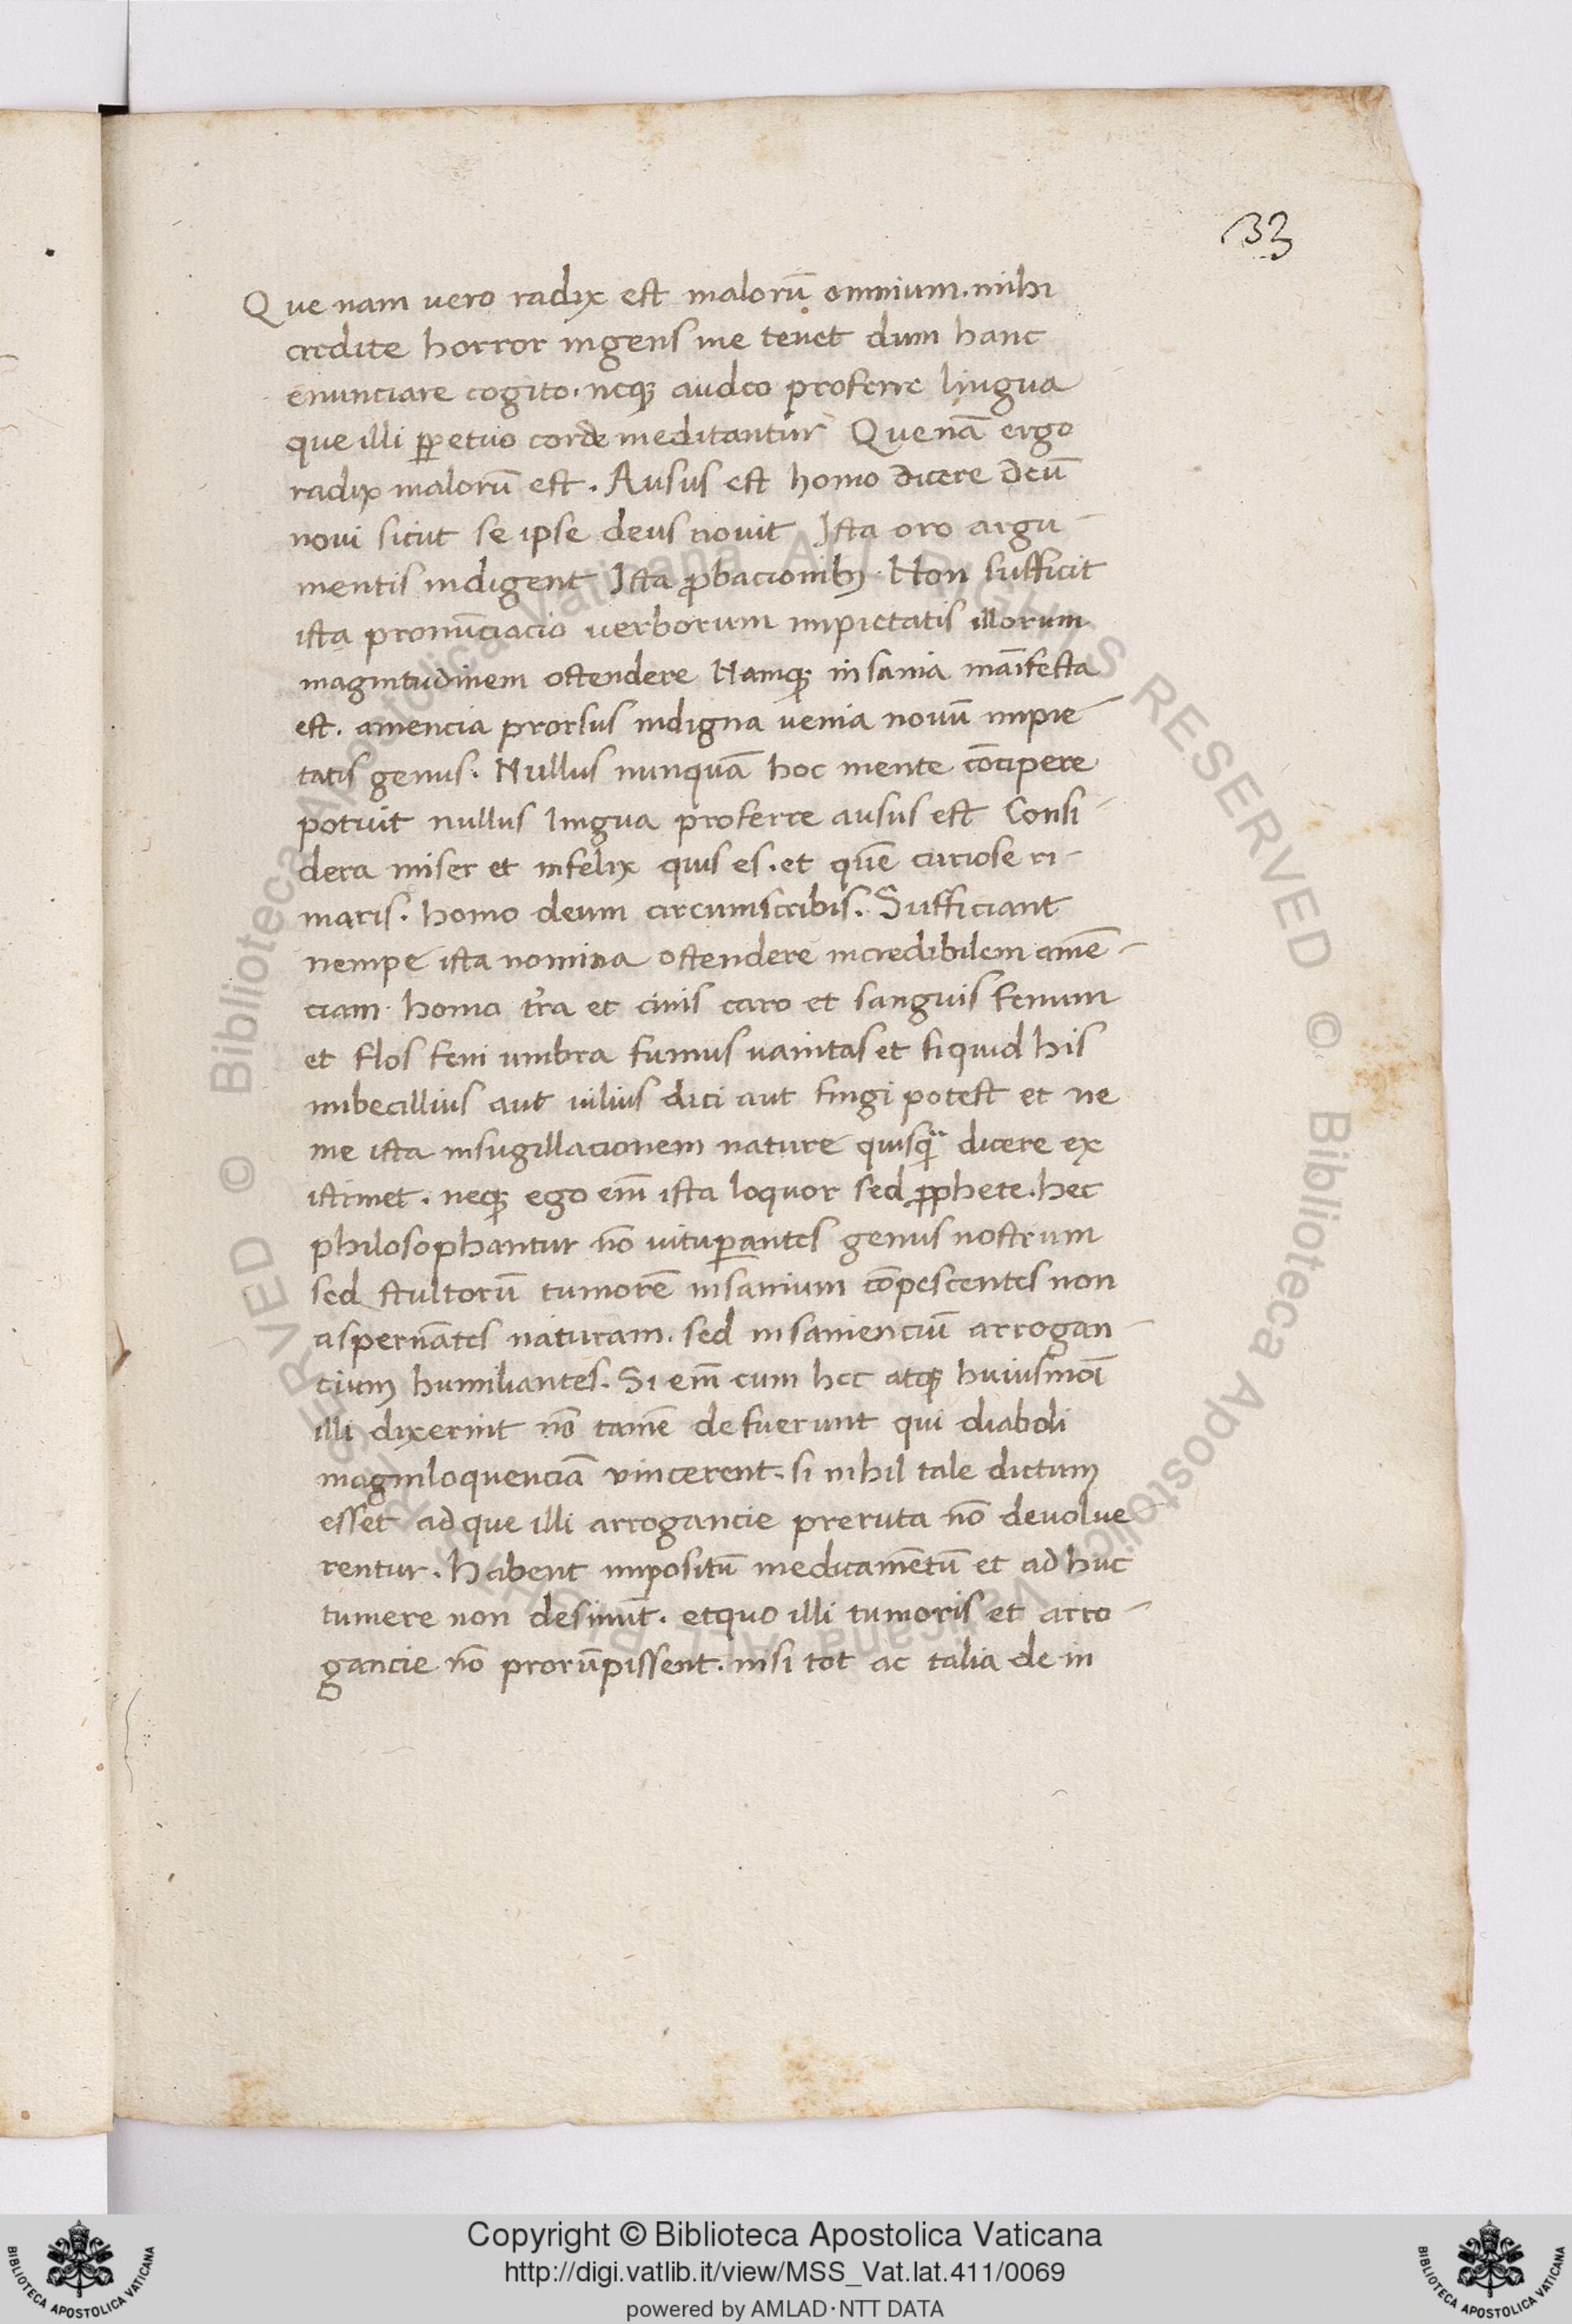 33
Que nam vero radix est malorū omnium. mihi
credite horror ingens me tenet dum hanc
enunciare cogito. neqꝫ audeo proferre lingua
que illi ꝑpetuo corde meditantur Quenā ergo
radix malorū est. Ausus est homo dicere deū
novi sicut se ipse deus novit Ista oro argu-
mentis indigent Ista ꝓbacionibꝫ. Non sufficit
ista pronūciacio verborum impietatis illorum
magnitudinem ostendere Namqꝫ insania māifesta
est. amencia prorsus indigna venia novū impie-
tatis genus. Nullus nunquā hoc mente cōcipere
potuit nullus lingua proferre ausus est Consi-
dera miser et infelix quis es. et quē curiose ri-
maris. homo deum circumscribis. Sufficiant
nempe ista nomina ostendere incredibilem amē-
ciam. homo t̄ra et cinis caro et sanguis fenum
et flos feni umbra fumus vanitas et siquid his
imbecillius aut vilius dici aut fingi potest et ne
me ista insugillacionem nature quisqᷓ dicere ex
istimet. neqꝫ ego em̄ ista loquor sed ꝓphete. hec
philosophantur nō vituꝑantes genus nostrum
sed stultorū tumorē insanium cōpescentes non
aspernātes naturam. sed insanienciū arrogan-
cium humiliantes. Si em̄ cum hec atqꝫ huiusmōi
illi dixerint nō tamē defuerunt qui diaboli
magniloquenciā vincerent. si nihil tale dictum
esset ad que illi arrogancie preruta nō devolve-
rentur. Habent impositū medicamētū et ad huc
tumere non desinūt. etquo illi tumoris et arro-
gancie nō prorūpissent. nisi tot ac talia de in
Copyright © Biblioteca Apostolica Vaticana
http://digi.vatlib.it/view/MSS_Vat.lat.411/0069
powered by AMLAD·NTT DATA